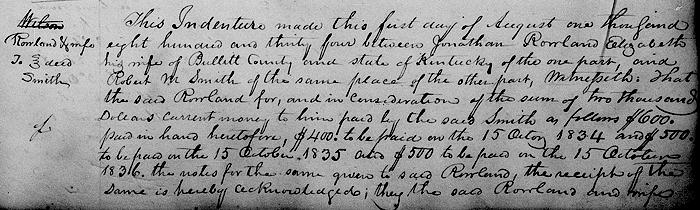 Wilson
Rowland & wife
To } deed
Smith
This Indenture made this first day of August one thousand
eight hundred and thirty four between Jonathan Rowland Elizabeth
his wife of Bullitt County and state of Kentucky of the one part, and
Robert M Smith of the same place of the other part, Witnesseth: That
the said Rowland for, and in consideration of the sum of two thousand
Dollars current money to him paid by the said Smith as follows $600.
paid in hand heretofore, $400. to be paid on the 15 Octor 1834 and $500
to be paid on the 15 October 1835 and $500 to be paid on the 15 October
1836. the notes for the same given to said Rowland, the receipt of the
same is hereby acknowledged; they the said Rowland and wife